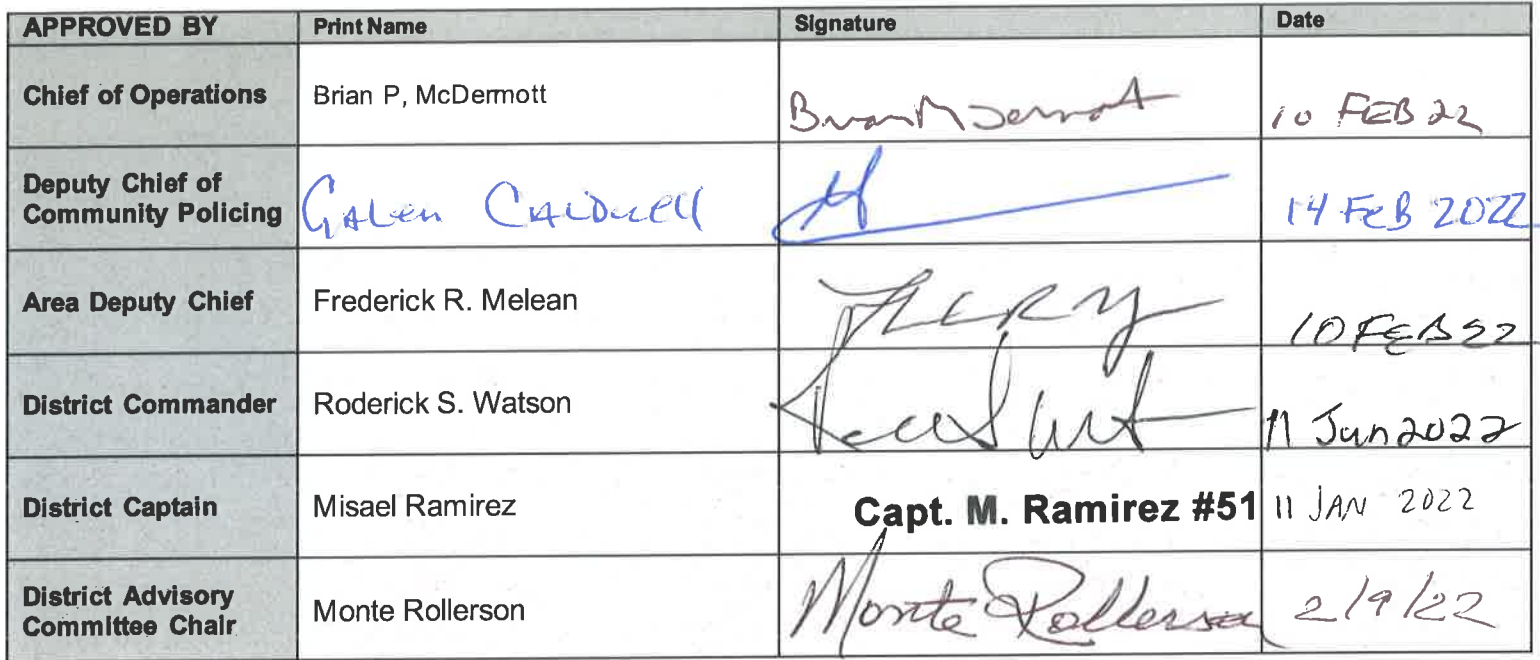 APPROVED BY Print Name Signature Date
Chief of Operations Brian P, McDermott Brian McDermott 10 FEB 22
Deputy Chief of
Community Policing GALen CALDwell 14 FEB 2022
Area Deputy Chief Frederick R. Melean 10 FEB 22
District Commander Roderick S. Watson 11 Jan 2022
District Captain Misael Ramirez Capt. M. Ramirez #51 11 JAN 2022
District Advisory
Committee Chair Monte Rollerson Monte Rollerson 2/9/22